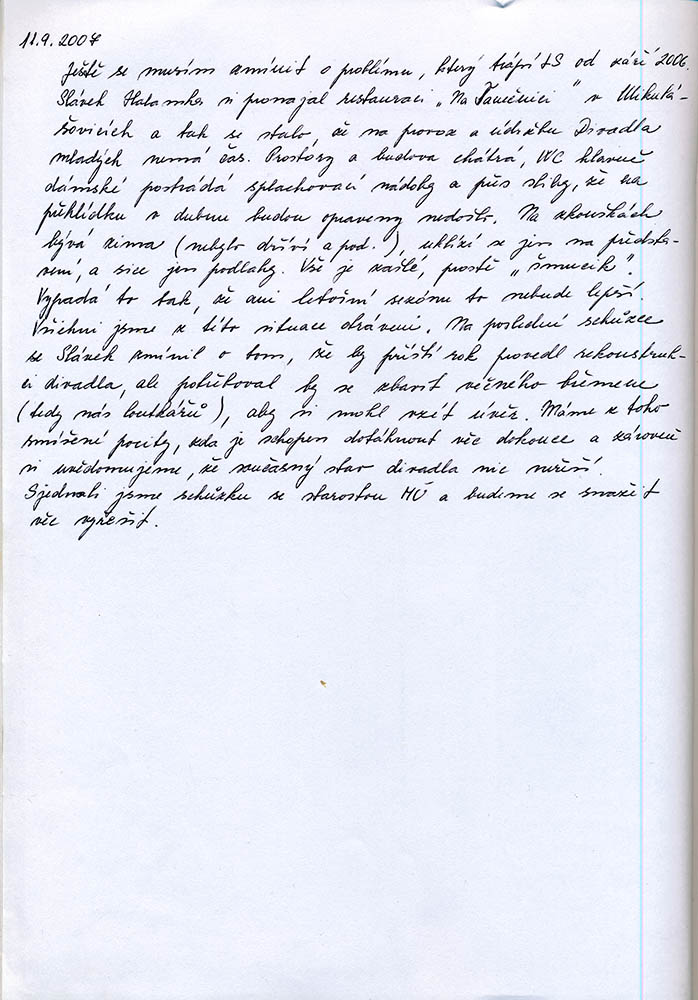 11.9.2007
Ještě se musím zmínit o problému, který trápí LS od září 2006.
Slávek Halamka si pronajal restauraci „Na Tanečnici" v Mikulá-
šovicích a tak se stalo, že na provoz a údržbu Divadla
mladých nemá čas. Prostory a budova chátrá, WC hlavně
dámské postrádá splachovací nádoby a přes sliby, že na
přehlídku v dubnu budou opraveny nedošlo. Na zkouškách
bývá zima (nebylo dříví a pod.), uklízí se jen na předsta-
vení, a sice jen podlahy. Vše je zašlé, prostě „šmucik".
Vypadá to tak, že ani letošní sezónu to nebude lepší.
Všichni jsme z této situace otráveni. Na poslední schůzce
se Slávek zmínil o tom, že by příští rok provedl rekonstruk-
ci divadla, ale potřeboval by se zbavit věčného břemene
(tedy nás loutkářů), aby si mohl vzít úvěr. Máme z toho
smíšené pocity, zda je schopen dotáhnout věc dokonce a zároveň
si uvědomujeme, že současný stav divadla nic neřeší.
Sjednali jsme schůzku se starostou MÚ a budeme se snažit
věc vyřešit.